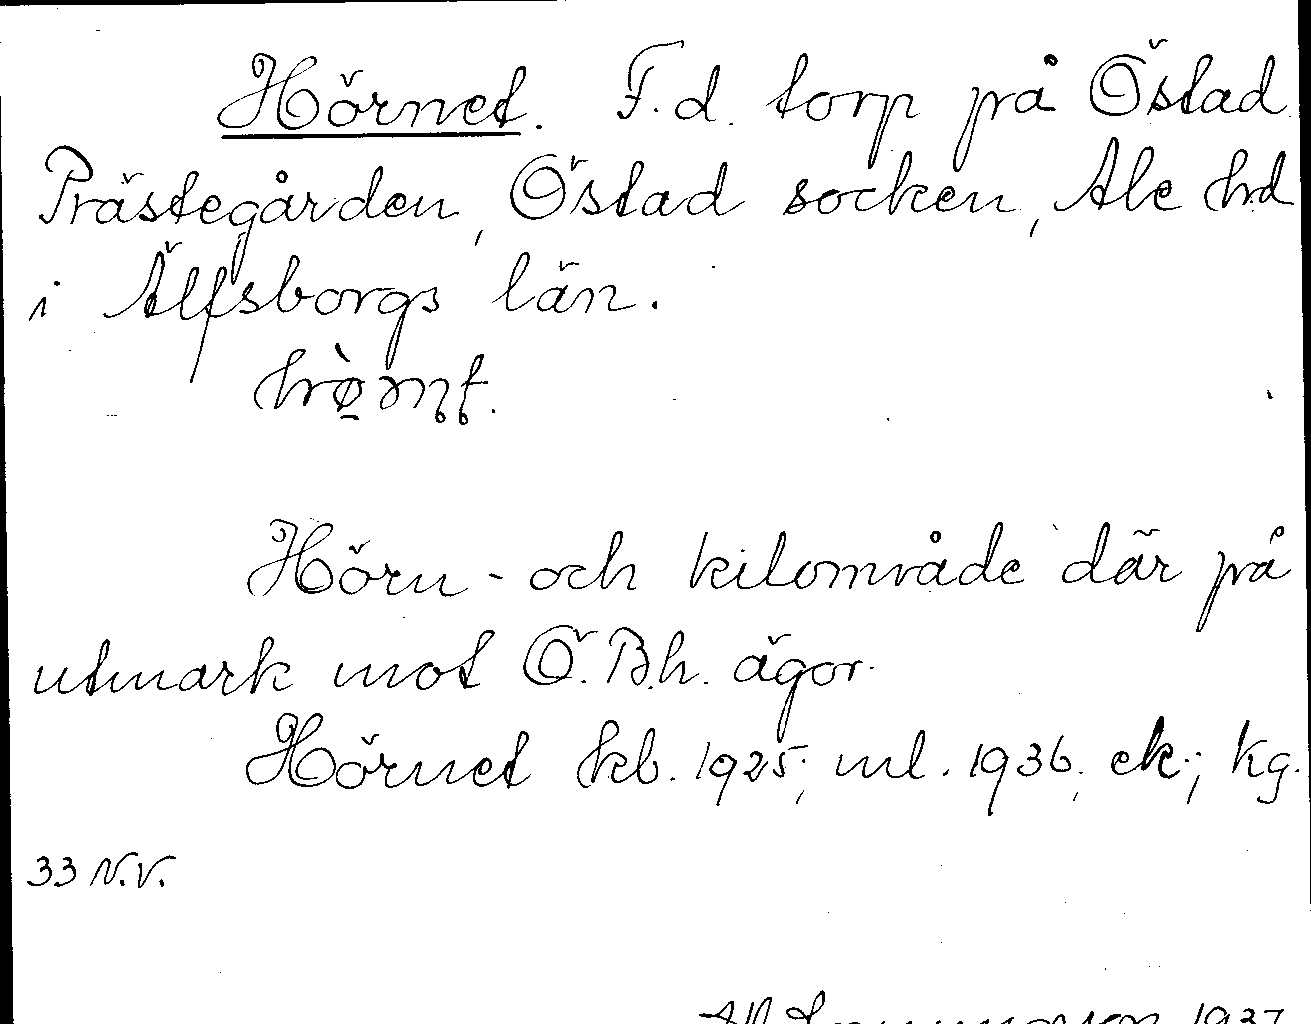 Hörnet. F.d. torp på Östad
Prästegården, Östad socken, Ale hd
i Älfsborgs län.
Hörn- och kilområde där på
utmark mot Ö. B.h. ägor.
Hörnet kb. 1925, ml. 1936, ek; kg.
33 N.V.
1937